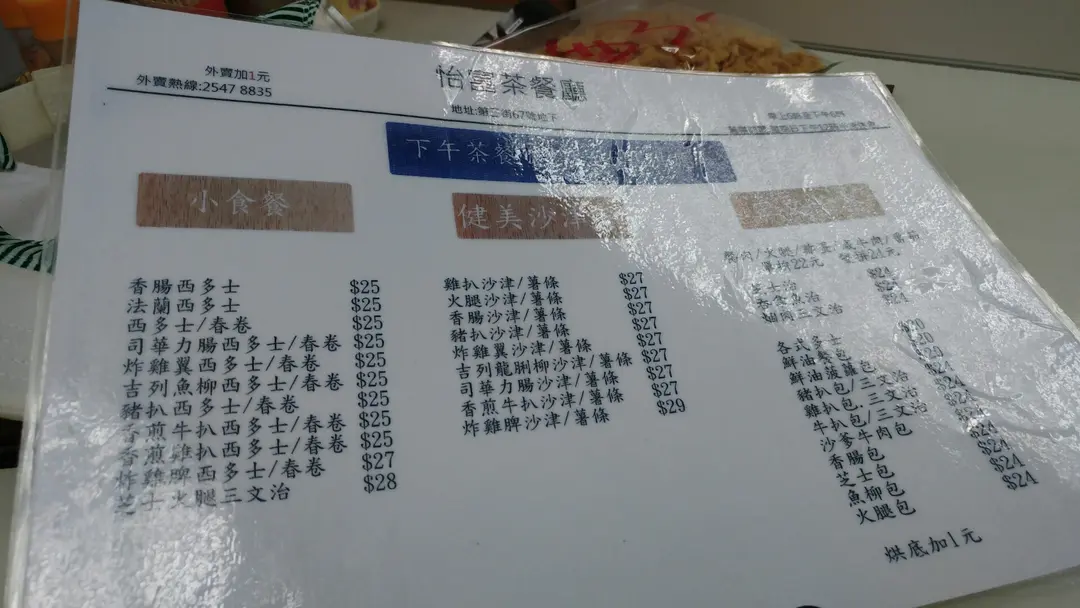 外賣加1元
外賣熱線:2547 8835
怡富茶餐廳
地址:第三街67號地下
下午茶餐
小食餐
香腸西多士 $25
法蘭西多士 $25
西多士/春卷 $25
司華力腸西多士/春卷 $25
炸雞翼西多士/春卷 $25
吉列魚柳西多士/春卷 $25
豬扒西多士/春卷 $25
香煎牛扒西多士/春卷 $25
香煎雞扒西多士/春卷 $25
炸雞脾西多士/春卷 $27
芝士火腿三文治 $28
健美沙津
雞扒沙津/薯條 $27
火腿沙津/薯條 $27
香腸沙津/薯條 $27
豬扒沙津/薯條 $27
炸雞翼沙津/薯條 $27
吉列龍脷柳沙津/薯條 $27
司華力腸沙津/薯條 $27
香煎牛扒沙津/薯條 $27
炸雞脾沙津/薯條 $29
單拼22元
芝士治 $24
吞拿魚治
三文治 $24
各式多士 $20
鮮油餐包
鮮油菠蘿包
豬扒包/三文治
雞扒包.三文治
牛扒包/三文治
沙爹牛肉包
香腸包
芝士包 $24
魚柳包 $24
火腿包 $24
烘底加1元